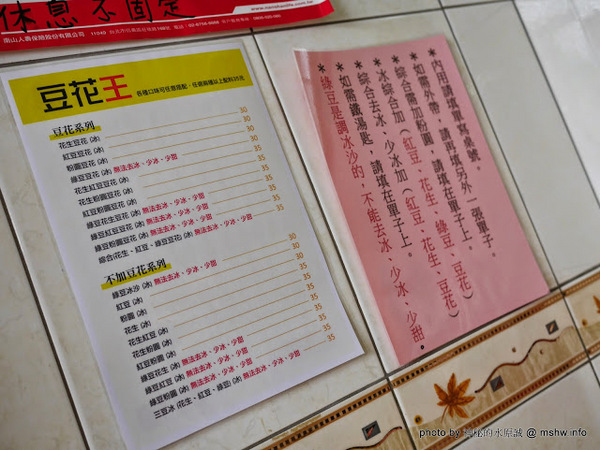 休息不固定
南山人壽保險股份有限公司
豆花王
各種口味可任意搭配，任選兩種以上配料35元
豆花系列
花生豆花 (冰) 30
紅豆豆花 (冰) 30
粉圓豆花 (冰) 30
綠豆豆花 (冰) 無法去冰、少冰、少甜 30
花生紅豆豆花 (冰) 35
花生粉圓豆花 (冰) 35
紅豆粉圓豆花 (冰) 35
綠豆花生豆花 (冰) 無法去冰、少冰、少甜 35
綠豆紅豆豆花 (冰) 無法去冰、少冰、少甜 35
綠豆粉圓豆花 (冰) 無法去冰、少冰、少甜 35
綜合(花生、紅豆、綠豆豆花) (冰) 無法去冰、少冰、少甜 35
不加豆花系列
綠豆冰沙 (冰) 無法去冰、少冰、少甜 30
紅豆 (冰) 30
粉圓 (冰) 30
花生 (冰) 30
花生紅豆 (冰) 35
花生粉圓 (冰) 35
紅豆粉圓 (冰) 35
綠豆花生 (冰) 無法去冰、少冰、少甜 35
綠豆紅豆 (冰) 無法去冰、少冰、少甜 35
綠豆粉圓 (冰) 無法去冰、少冰、少甜 35
三豆冰 (花生、紅豆、綠豆) (冰) 無法去冰、少冰、少甜 35
＊內用請填單寫桌號。
＊如需外帶，請再填另外一張單子。
＊綜合需加粉圓，請填在單子上。
＊冰綜合加（紅豆、花生、綠豆、豆花）
＊綜合去冰、少冰加（紅豆、花生、豆花）
＊如需鐵湯匙，請填在單子上。
＊綠豆是調冰沙的，不能去冰、少冰、少甜。
photo by 神秘的水原誠 @ mshw.info